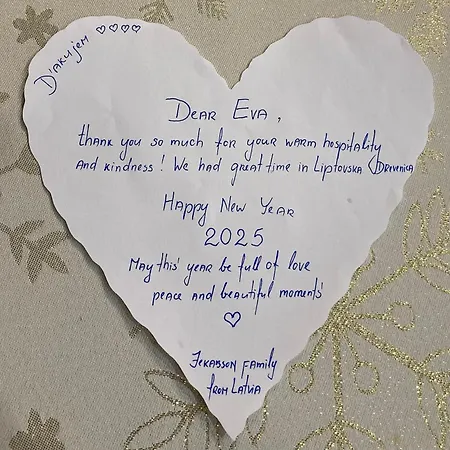 D'akujem ♡♡♡♡
Dear Eva,
thank you so much for your warm hospitality
and kindness! We had great time in Liptovska Drevenica
Happy New Year
2025
May this year be full of love
peace and beautiful moments
♡
Jekabson Family
from Latvia